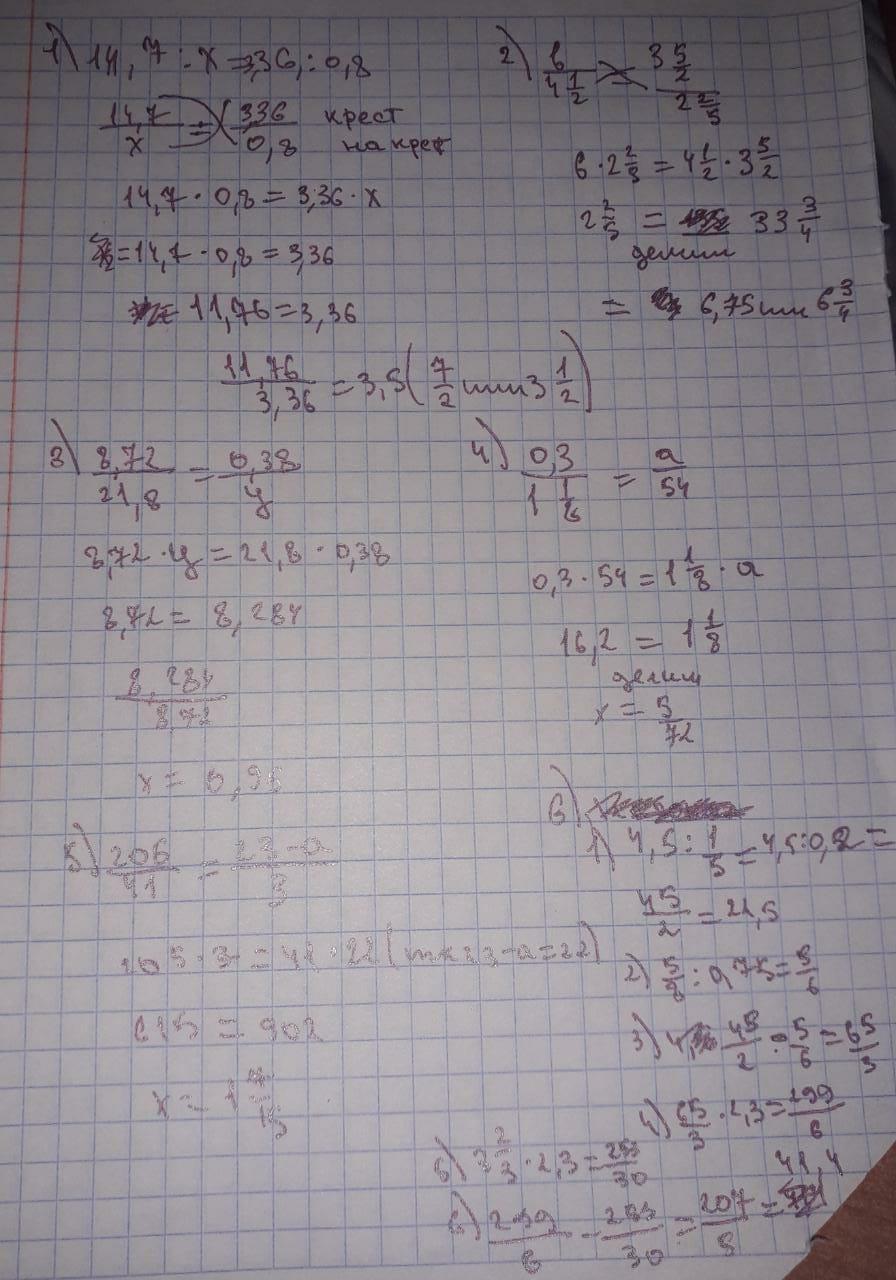 1) 14,7 : x = 3,36 : 0,8
14,7/x = 3,36/0,8 крест
на крест
14,7 · 0,8 = 3,36 · x
= 14,7 · 0,8 = 3,36
11,76 = 3,36
11,76/3,36 = 3,5 (7/2 или 3 1/2)
2) 6/4 1/2 = 3 5/2/2 2/5
6 · 2 2/3 = 4 1/2 · 3 5/2
2 2/5 = 33 3/4
делим
= 6,75 или 6 3/4
3) 8,72/21,8 = 0,38/y
8,72 · y = 21,8 · 0,38
8,72 = 8,284
8,284/8,72
x = 0,95
4) 0,3/1 1/8 = a/54
0,3 · 54 = 1 1/8 · a
16,2 = 1 1/8
делим
x = 5/72
5) 206/41 = 23-a/3
205 · 3 = 41 · 22 (тк 23-a=22)
615 = 902
x = 1 7/15
6)
1) 4,5 : 1/5 = 4,5 : 0,2 =
45/2 = 22,5
2) 5/8 : 0,75 = 5/6
3) 45/2 · 5/6 = 65/3
4) 65/3 · 2,3 = 299/6
5) 3 2/3 · 2,3 = 253/30
6) 299/6 - 253/30 = 207/5 = 41,4